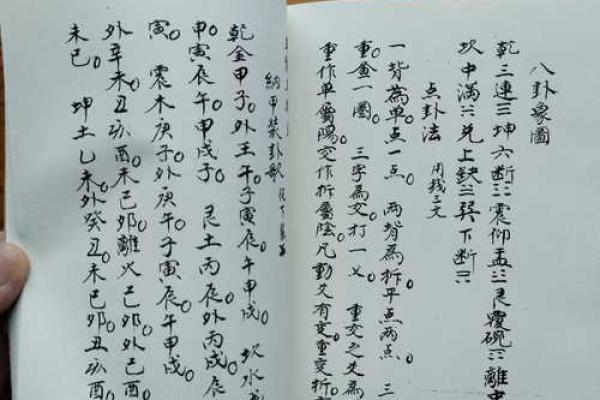 八卦象圖
乾三連☰坤六断☷震仰盂☳艮覆碗☶離中
坎中滿☵兌上缺☱巽下断☴
点卦法 用錢三文
一背為单点一点。 两背為拆平点两点。 三
重一圈。 三字為交打一乂。 重交之爻為
重作单屬陽。交作拆屬陰。凡動爻有变。重变拆
納甲装卦歌
乾金甲子。外壬午子寅辰。午申戌。坎水戊
申寅辰午。申戌子。 艮土丙辰。外丙戌辰
寅。 震木庚子。外庚午子寅辰。午申戌。
外辛未丑亥酉。未巳卯離火己卯。外己酉
未巳。 坤土乙未。外癸丑。未巳卯。丑亥酉